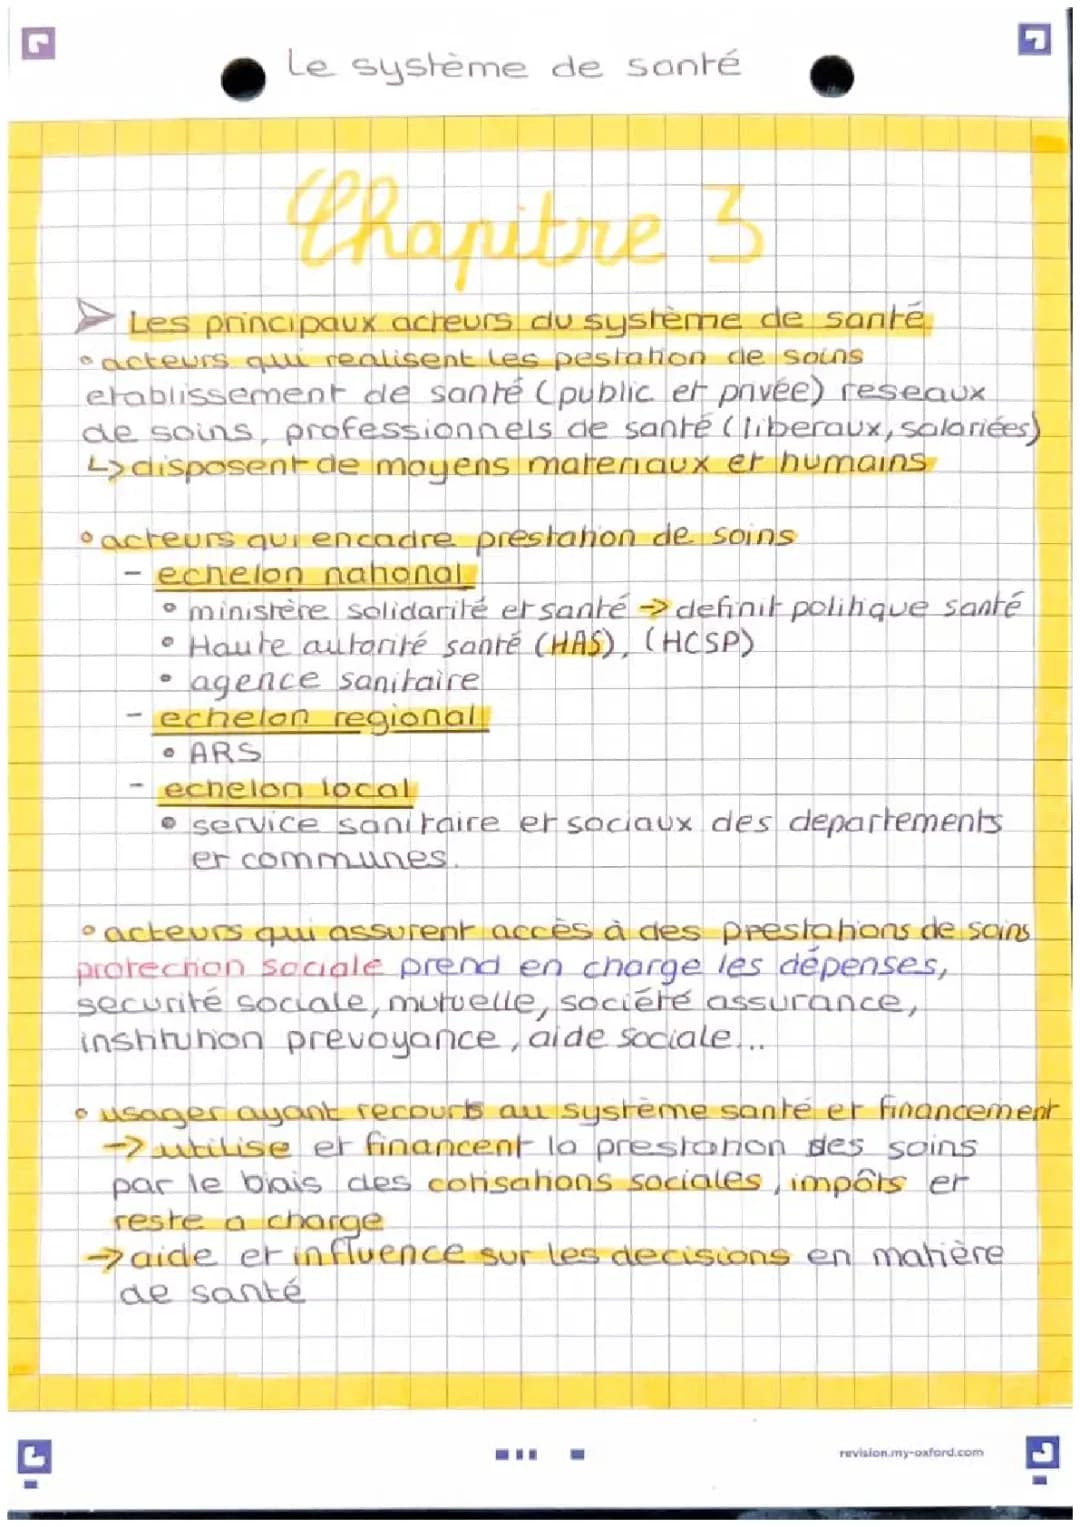 Le système de santé
Chapitre 3
➤ Les principaux acteurs du système de santé
• acteurs qui realisent les pestation de soins
etablissement de santé (public et privée) reseaux
de soins, professionnels de santé (liberaux, salariées)
↳ disposent de moyens materiaux et humains
• acteurs qui encadre prestation de soins
- echelon national
• ministère solidarité et santé → definit politique santé
• Haute autorité santé (HAS), (HCSP)
• agence sanitaire
- echelon regional
• ARS
- echelon local
• service sanitaire et sociaux des departements
et communes.
• acteurs qui assurent accès à des prestations de soins
protection sociale prend en charge les dépenses,
securité sociale, mutuelle, société assurance,
institution prevoyance, aide sociale...
• usager ayant recours au système santé et financement
→ utilise et financent la prestation des soins
par le biais des cotisations sociales, impôts et
reste a charge
→ aide et influence sur les decisions en matière
de santé
revision.my-oxford.com